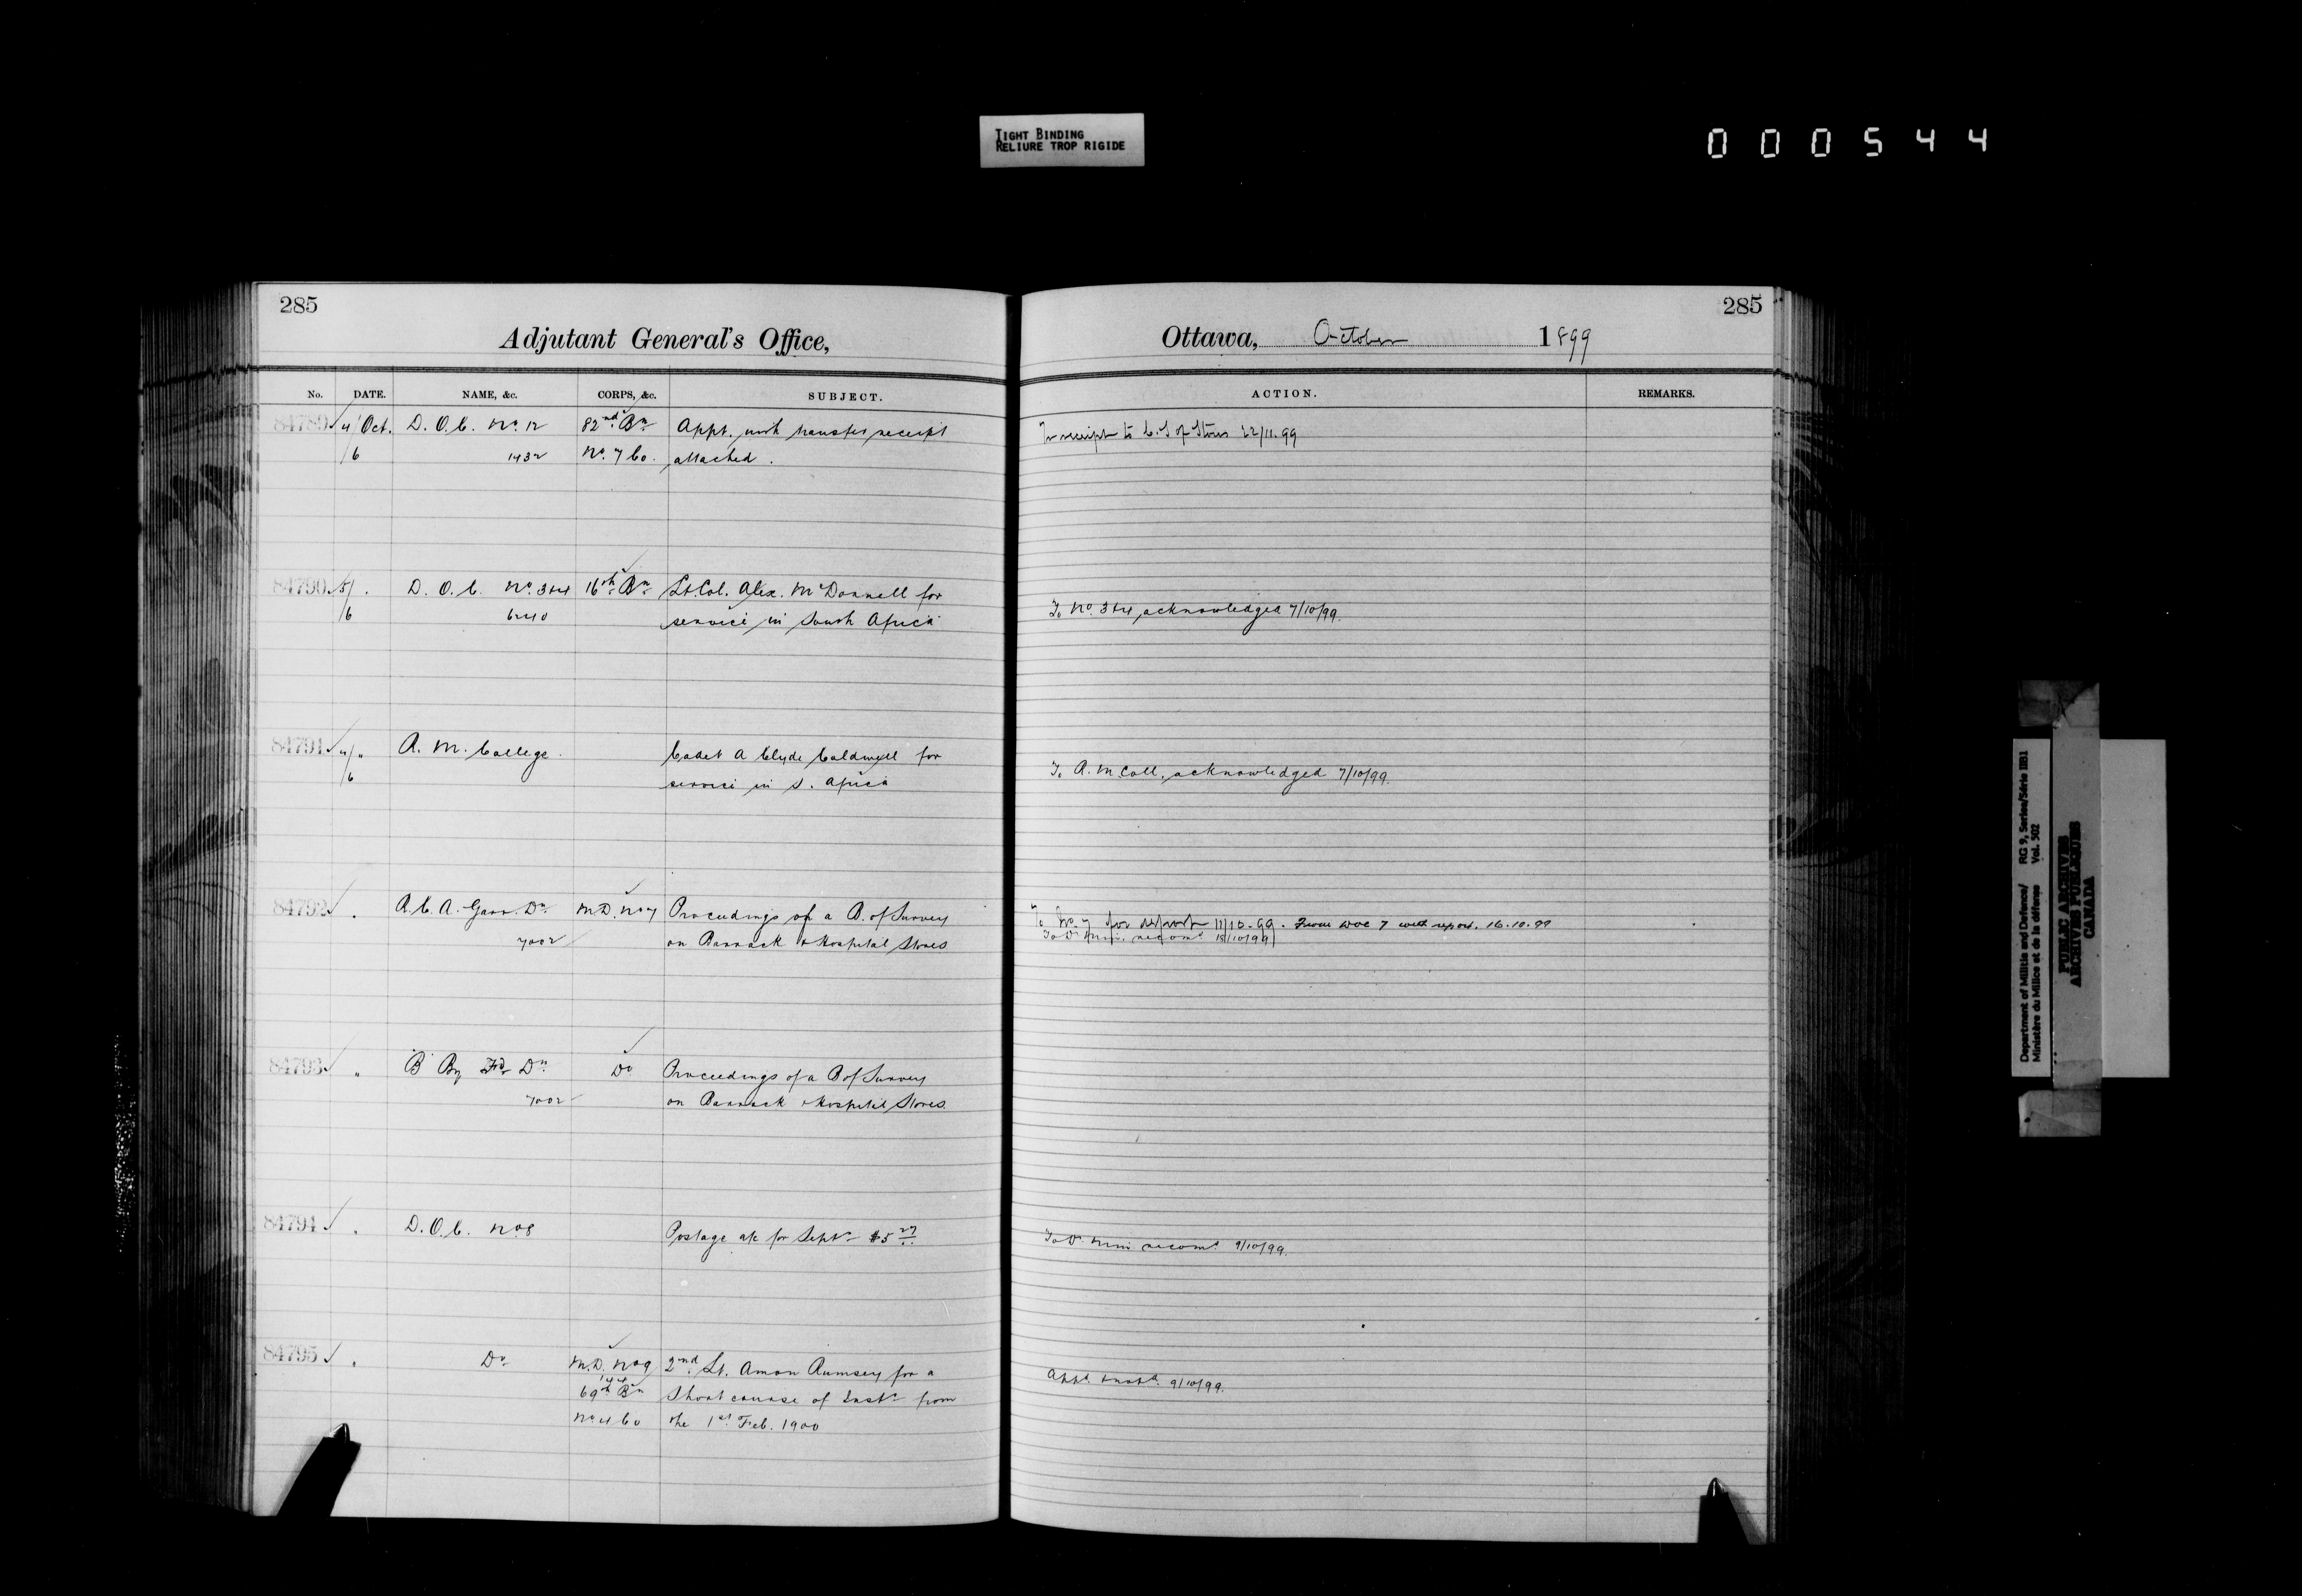 TIGHT BINDING
RELIURE TROP RIGIDE
000544
285
Adjutant General's Office,
No. DATE. NAME, &c. CORPS, &c. SUBJECT.
84789 ✓ 4/ Oct. D. O. C. No. 12 82nd Bn Appt. with transfer receipt
/6 1432 No. 7 Co. attached.
84790 ✓ 5/ . D. O. C. No. 3+4 16th Bn Lt. Col. Alex. McDonnell for
/6 6240 service in South Africa
84791 ✓ 4/ " R. M. College. Cadet A Clyde Caldwell for
/6 service in S. Africa
84792 ✓ . R. C. A. Garr. Dn. M.D. No 7 Proceedings of a B. of Survey
7002 on Barrack & Hospital Stores
84793 ✓ " "B" By Fd Dn Do Proceedings of a B of Survey
7002 on Barrack & Hospital Stores
84794 ✓ . D. O. C. No 8 Postage a/c for Septr $5 27
84795 ✓ . Do M.D. No 9 2nd Lt. Amon Rumsey for a
69th Bn Short course of Instn from
No 4 Co the 1st Feb. 1900
285
Ottawa, October 1899
ACTION. REMARKS.
Tr receipt to C. S of Stores 22/11.99
To No. 3+4, acknowledged 7/10/99.
To R. M. Coll. acknowledged 7/10/99.
To No. 7 for report 11/10.99. From DOC 7 with report. 16.10.99
To D. Min. recomd 18/10/99
To D. Min recomd 9/10/99.
9/10/99.
Department of Militia and Defence/ RG 9, Series/Série IIB1
Ministère du Milice et de la défense Vol. 502
PUBLIC ARCHIVES
ARCHIVES PUBLIQUES
CANADA